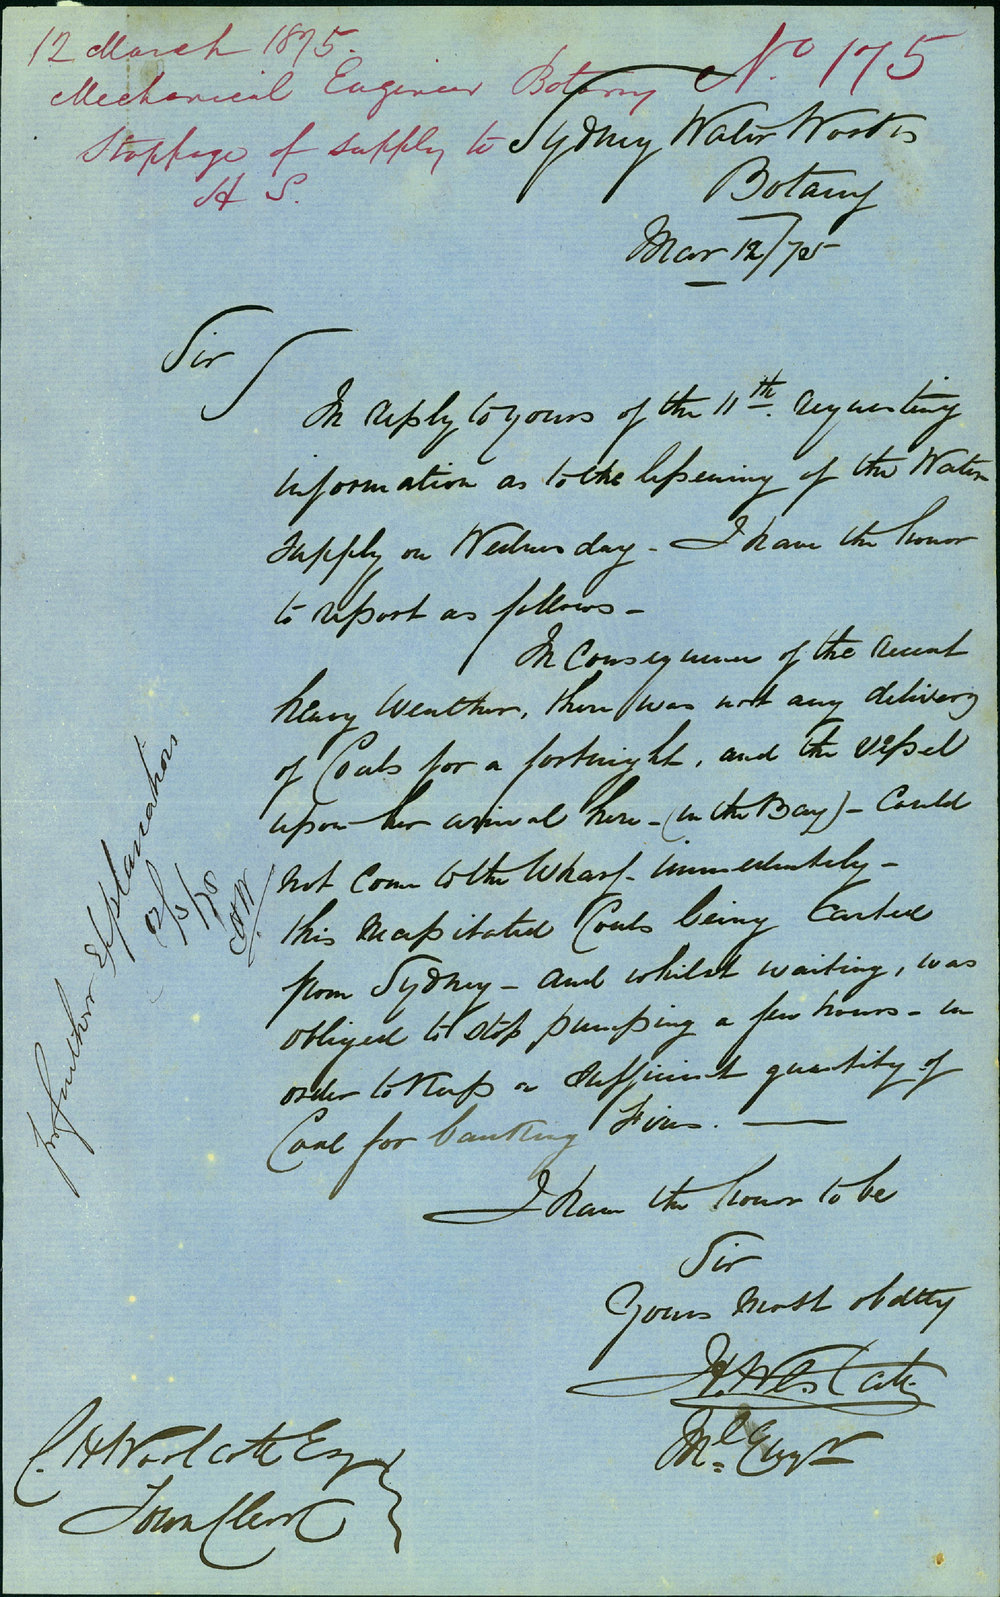 12 March 1875.
Mechanical Engineer Botany
Stoppage of supply to
H S.
No 175
Sydney Water Works
Botany
Mar 12/75
Sir
In reply to yours of the 11th. requesting
information as to the lessening of the Water
supply on Wednesday - I have the honor
to report as follows -
In Consequence of the recent
heavy Weather, there was not any delivery
of Coals for a fortnight, and the Vessel
upon her arrival here - (in the Bay) - Could
not Come to the Wharf immediately -
this Necessitated Coals being Carted
from Sydney - and whilst waiting, was
obliged to stop pumping a few hours - in
order to keep a Sufficient quantity of
Coal for banking Fires.
I have the honor to be
Sir
Yours Most obdtly
Ml. Engr
C. H Woolcott Esq
Town Clerk
for further Explanations
12/3/75
CHW